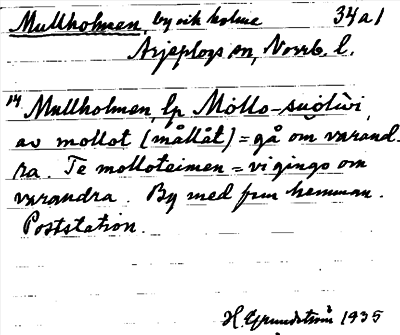 Mullholmen, by och holme 34a1
Arjeplogs sn, Norrb. l.
14 Mullholmen, lp Mollo-suolŭi,
av mollot [mållåt] = gå om varand-
ra. Te molloteimen = vi gingo om
varandra. By med fem hemman.
Poststation.
H. Grundström 1935